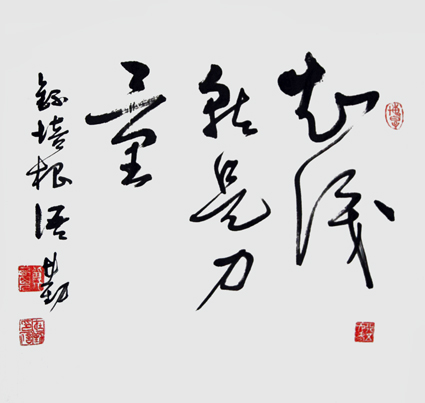 知識
就是力
量
錄培根語